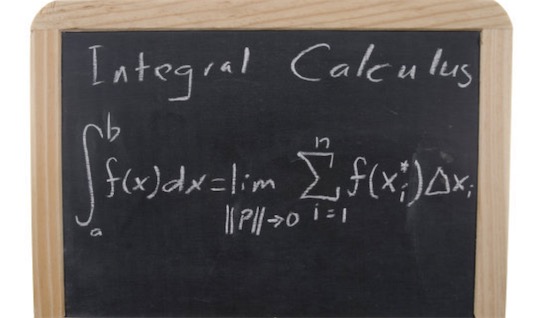 Integral Calculus
∫ₐᵇ f(x)dx = lim_{||P||→0} ∑_{i=1}^{n} f(xᵢ*)Δxᵢ